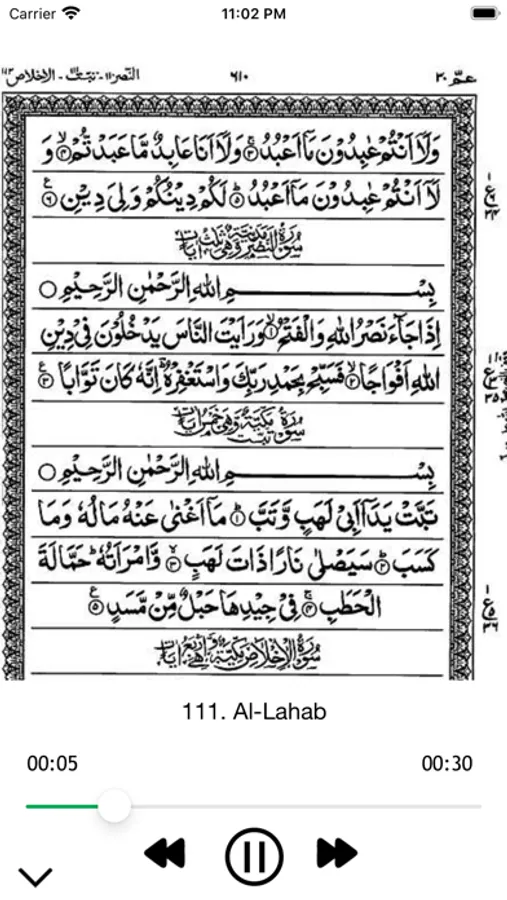 Carrier 11:02 PM
النصر١١٠ - تبت١١١ - الاخلاص١١٢ ٦١٠ عمّ ٣٠
وَلَاۤ اَنْتُمْ عٰبِدُوْنَ مَاۤ اَعْبُدُ ۚ﴿۳﴾ وَلَاۤ اَنَا عَابِدٌ مَّا عَبَدْتُّمْ ۙ﴿۴﴾ وَ
لَاۤ اَنْتُمْ عٰبِدُوْنَ مَاۤ اَعْبُدُ ؕ﴿۵﴾ لَكُمْ دِيْنُكُمْ وَلِيَ دِيْنِ ﴿۶﴾
سُوْرَةُ النَّصْرِ مَدَنِيَّةٌ وَّهِيَ ثَلٰثُ اٰيَاتٍ
بِسْمِ اللهِ الرَّحْمٰنِ الرَّحِيْمِ
اِذَا جَآءَ نَصْرُ اللهِ وَالْفَتْحُ ۙ﴿۱﴾ وَرَاَيْتَ النَّاسَ يَدْخُلُوْنَ فِيْ دِيْنِ
اللهِ اَفْوَاجًا ۙ﴿۲﴾ فَسَبِّحْ بِحَمْدِ رَبِّكَ وَاسْتَغْفِرْهُ ؔؕ اِنَّهٗ كَانَ تَوَّابًا ﴿۳﴾
سُوْرَةُ تَبَّتْ مَكِّيَّةٌ وَّهِيَ خَمْسُ اٰيَاتٍ
بِسْمِ اللهِ الرَّحْمٰنِ الرَّحِيْمِ
تَبَّتْ يَدَاۤ اَبِيْ لَهَبٍ وَّتَبَّ ؕ﴿۱﴾ مَاۤ اَغْنٰى عَنْهُ مَالُهٗ وَمَا
كَسَبَ ؕ﴿۲﴾ سَيَصْلٰى نَارًا ذَاتَ لَهَبٍ ۚۖ﴿۳﴾ وَّامْرَاَتُهٗ ؕ حَمَّالَةَ
الْحَطَبِ ۚ﴿۴﴾ فِيْ جِيْدِهَا حَبْلٌ مِّنْ مَّسَدٍ ﴿۵﴾
سُوْرَةُ الْاِخْلَاصِ مَكِّيَّةٌ وَّهِيَ اَرْبَعُ اٰيَاتٍ
111. Al-Lahab
00:05 00:30